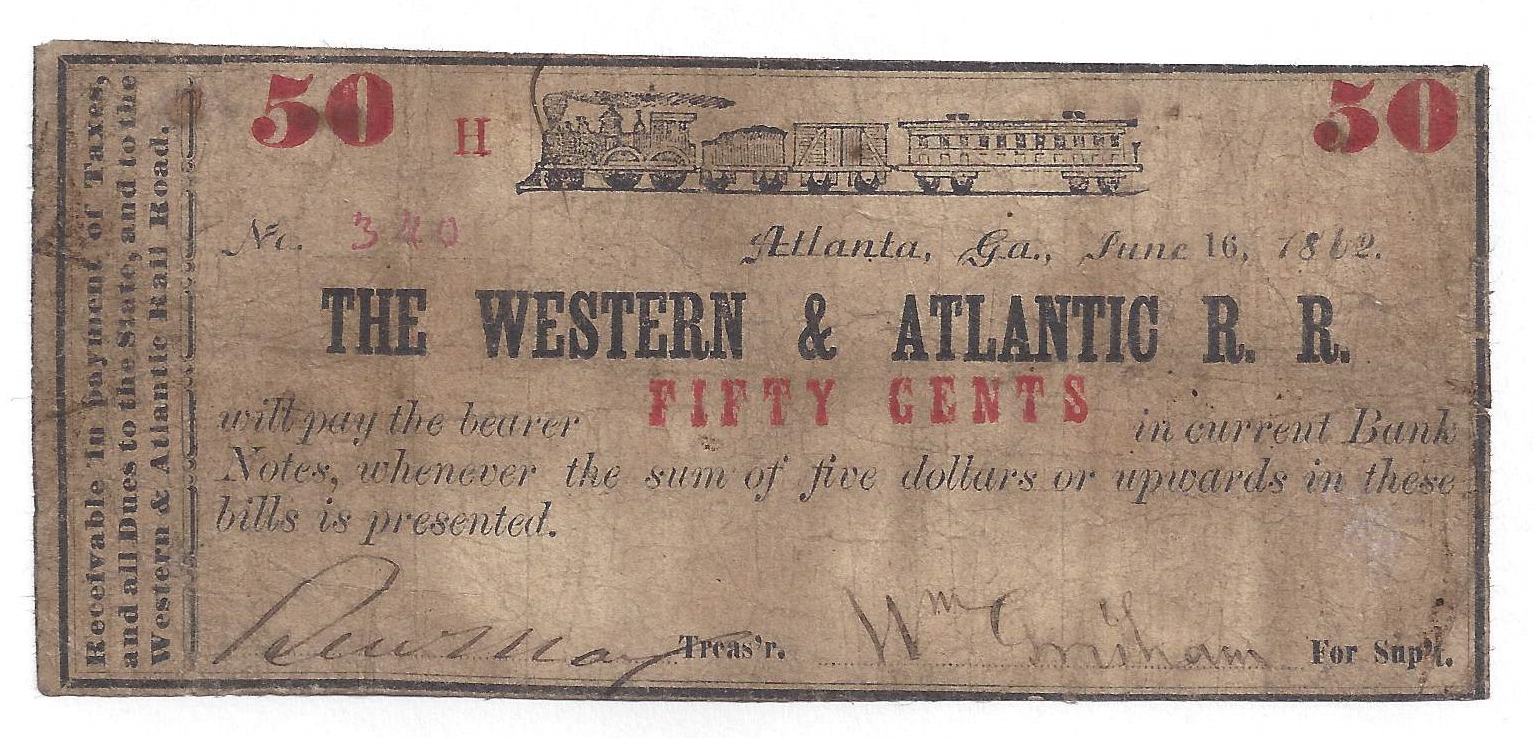 Receivable in payment of Taxes,
and all Dues to the State, and to the
Western & Atlantic Rail Road.
50 H 50
No. 340 Atlanta, Ga., June 16, 1862.
THE WESTERN & ATLANTIC R. R.
will pay the bearer FIFTY CENTS in current Bank
Notes, whenever the sum of five dollars or upwards in these
bills is presented.
Ben May Treas'r. Wm Grisham For Sup't.